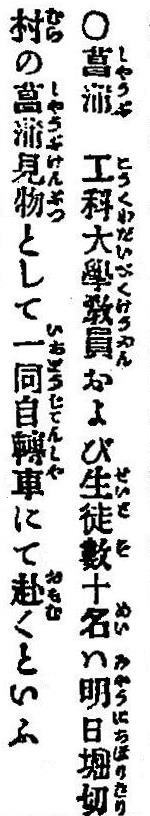 ○菖蒲　工科大學敎員および生徒數十名ハ明日堀切
村の菖蒲見物として一同自轉車にて赴くといふ